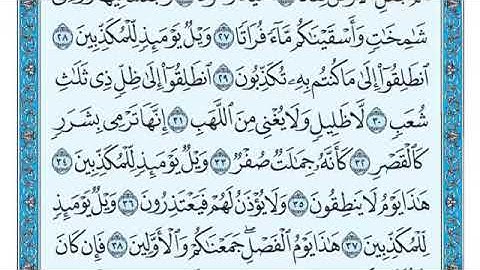 شَٰمِخَٰتٍ وَأَسْقَيْنَٰكُم مَّآءً فُرَاتًا ٢٧ وَيْلٌ يَوْمَئِذٍ لِّلْمُكَذِّبِينَ ٢٨
ٱنطَلِقُوٓا۟ إِلَىٰ مَا كُنتُم بِهِۦ تُكَذِّبُونَ ٢٩ ٱنطَلِقُوٓا۟ إِلَىٰ ظِلٍّ ذِى ثَلَٰثِ
شُعَبٍ ٣٠ لَّا ظَلِيلٍ وَلَا يُغْنِى مِنَ ٱللَّهَبِ ٣١ إِنَّهَا تَرْمِى بِشَرَرٍ
كَٱلْقَصْرِ ٣٢ كَأَنَّهُۥ جِمَٰلَتٌ صُفْرٌ ٣٣ وَيْلٌ يَوْمَئِذٍ لِّلْمُكَذِّبِينَ ٣٤
هَٰذَا يَوْمُ لَا يَنطِقُونَ ٣٥ وَلَا يُؤْذَنُ لَهُمْ فَيَعْتَذِرُونَ ٣٦ وَيْلٌ يَوْمَئِذٍ
لِّلْمُكَذِّبِينَ ٣٧ هَٰذَا يَوْمُ ٱلْفَصْلِ ۖ جَمَعْنَٰكُمْ وَٱلْأَوَّلِينَ ٣٨ فَإِن كَانَ